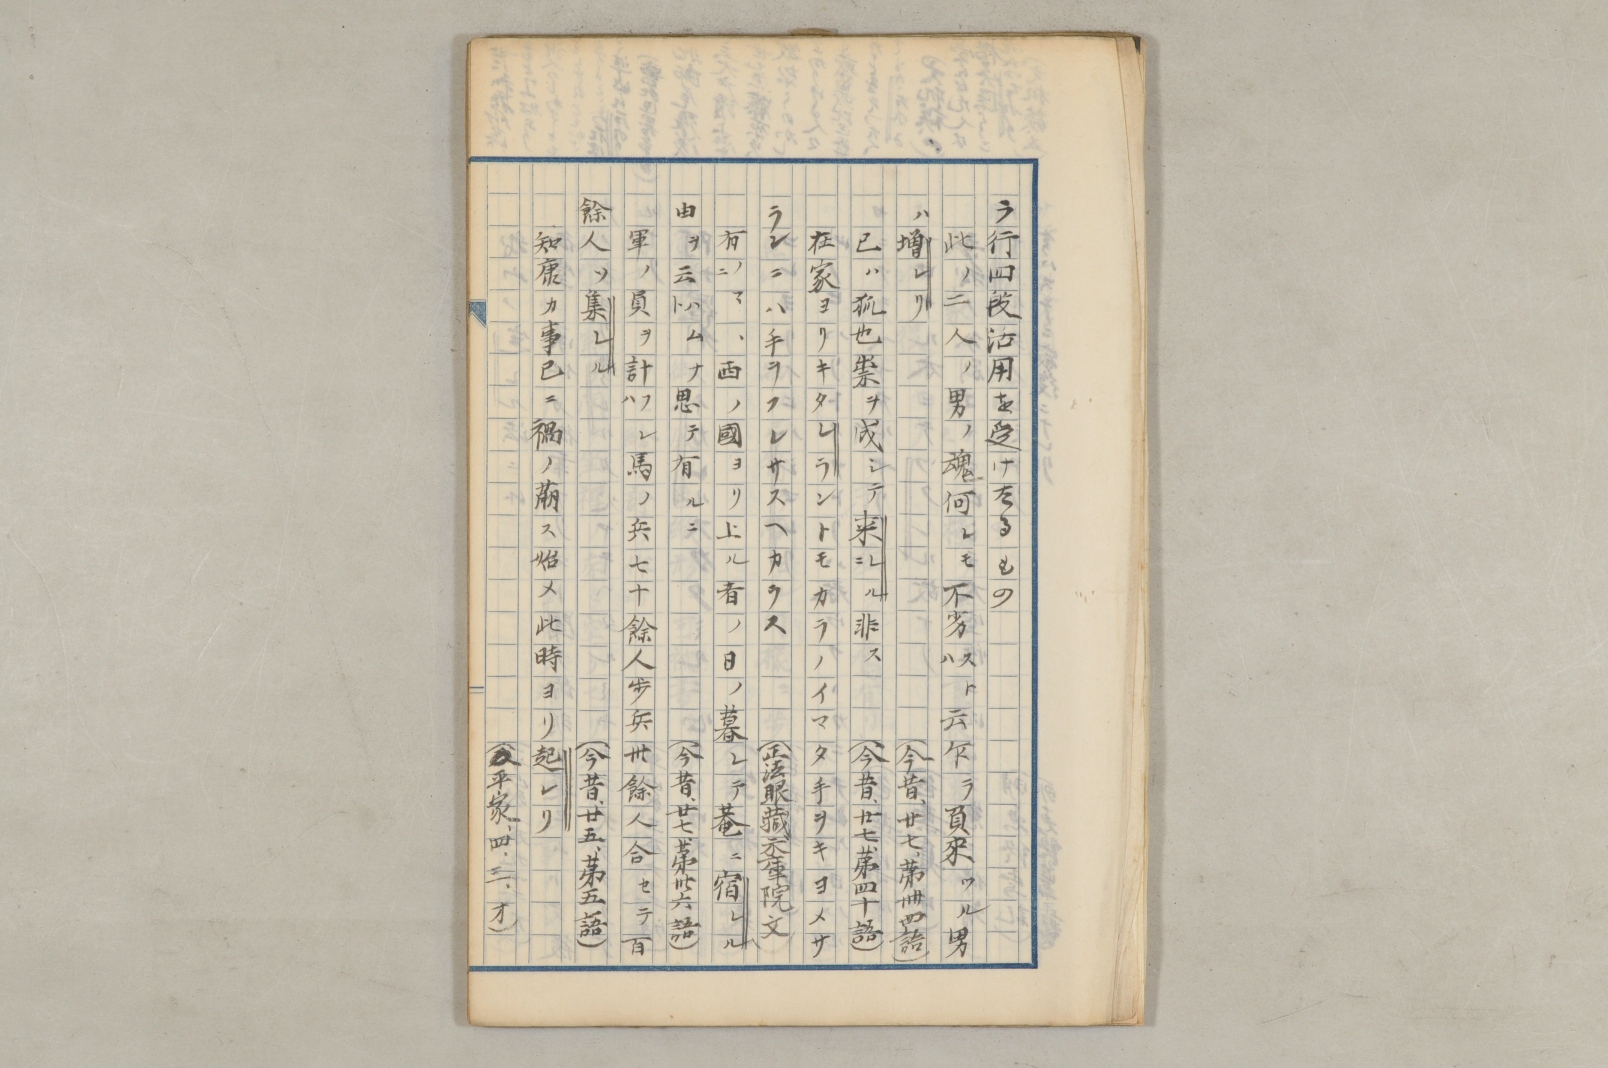 ラ行四段活用を受けたるもの
此ノ二人ノ男ノ魂何レモ不劣ハスト云乍ラ負来ツル男
ハ増レリ(今昔、廿七、第卌四語)
已ハ狐也祟ヲ成シテ来ニレルハ非ス(今昔、廿七、第四十語)
在家ヨリキタレラントモカラノイマタ手ヲキヨメサ
ランニハ手ヲフレサスヘカラス(正法眼蔵示庫院文
有ノニマヽ、西ノ國ヨリ上ル者ノ日ノ暮レテ菴ニ宿レル
由ヲ云ハトムナ思テ有ルニ(今昔、廿七、第卅六語)
軍ノ員ヲ計ハフレ馬ノ兵七十餘人歩兵卅餘人合セテ百
餘人ソ集レル(今昔、廿五、第五語)
知康カ事已ニ禍ノ萠ス始メ此時ヨリ起レリ
平家、四、三、オ)